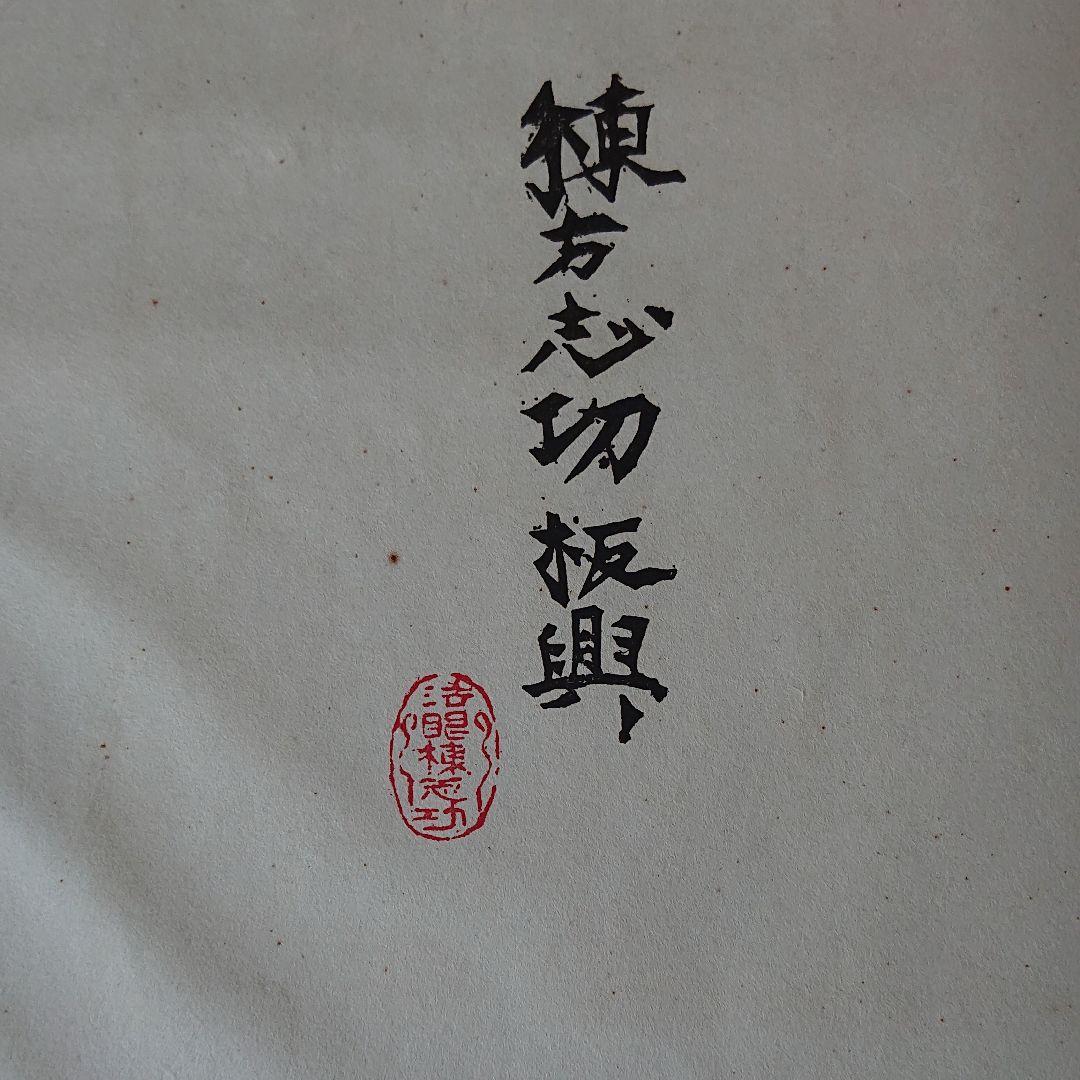 棟方志功板興
棟志功